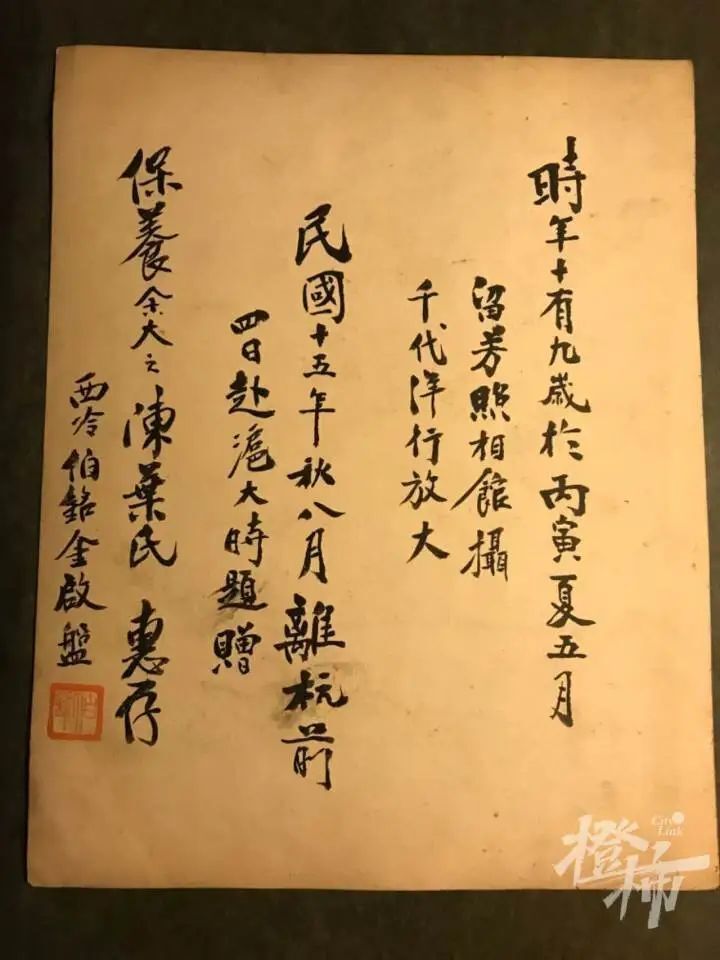 時年十有九歲於丙寅夏五月
留芳照相館攝
千代洋行放大
民國十五年秋八月離杭前
四日赴滬大時題贈
保養余大之陳葉氏 惠存
西泠伯銘金啟盤
City Link
橙柿